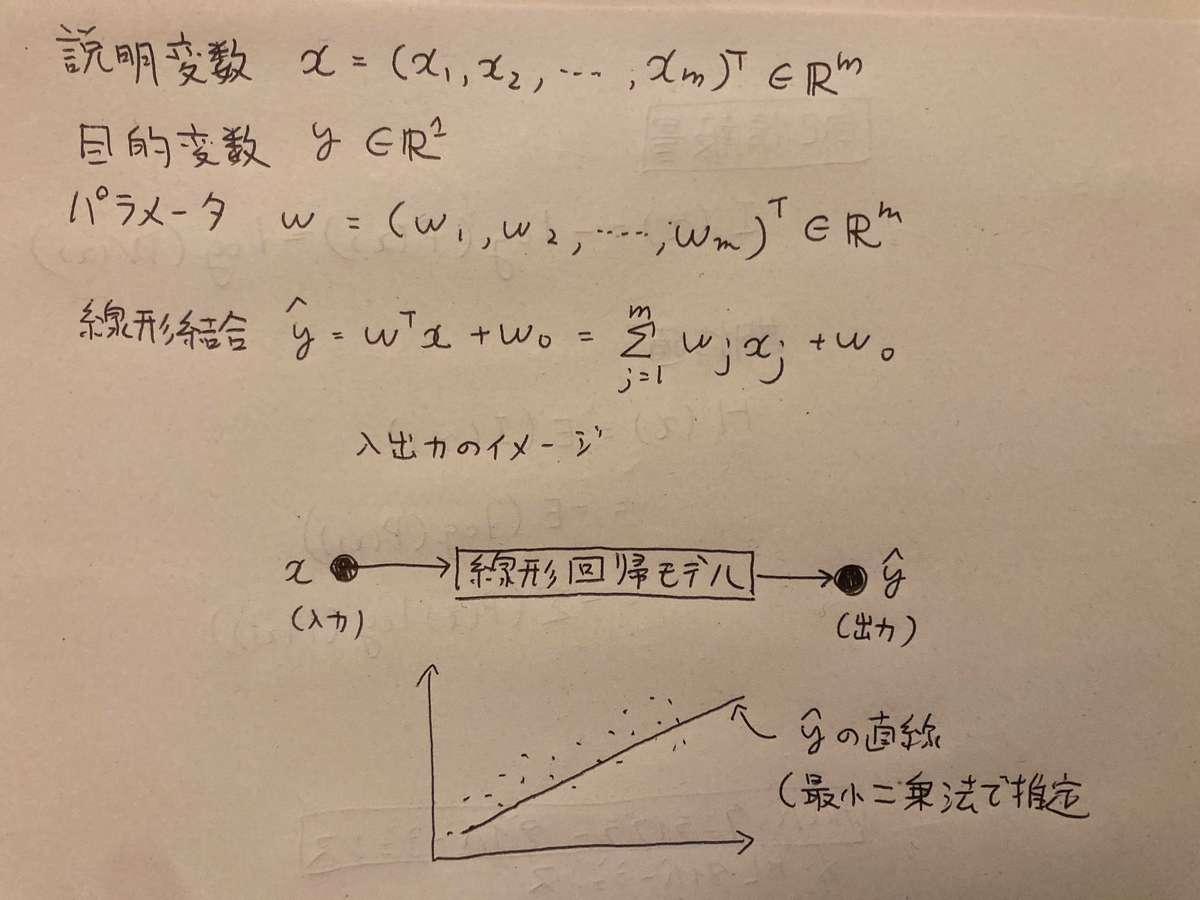 説明変数 x = (x₁, x₂, ‥‥, xₘ)ᵀ ∈ ℝᵐ
目的変数 y ∈ ℝ¹
パラメータ w = (w₁, w₂, ‥‥, wₘ)ᵀ ∈ ℝᵐ
線形結合 ŷ = wᵀx + w₀ = ∑_{j=1}^{m} w_j x_j + w₀
入出力のイメージ
x 線形回帰モデル ŷ
(入力) (出力)
ŷの直線
(最小二乗法で推定